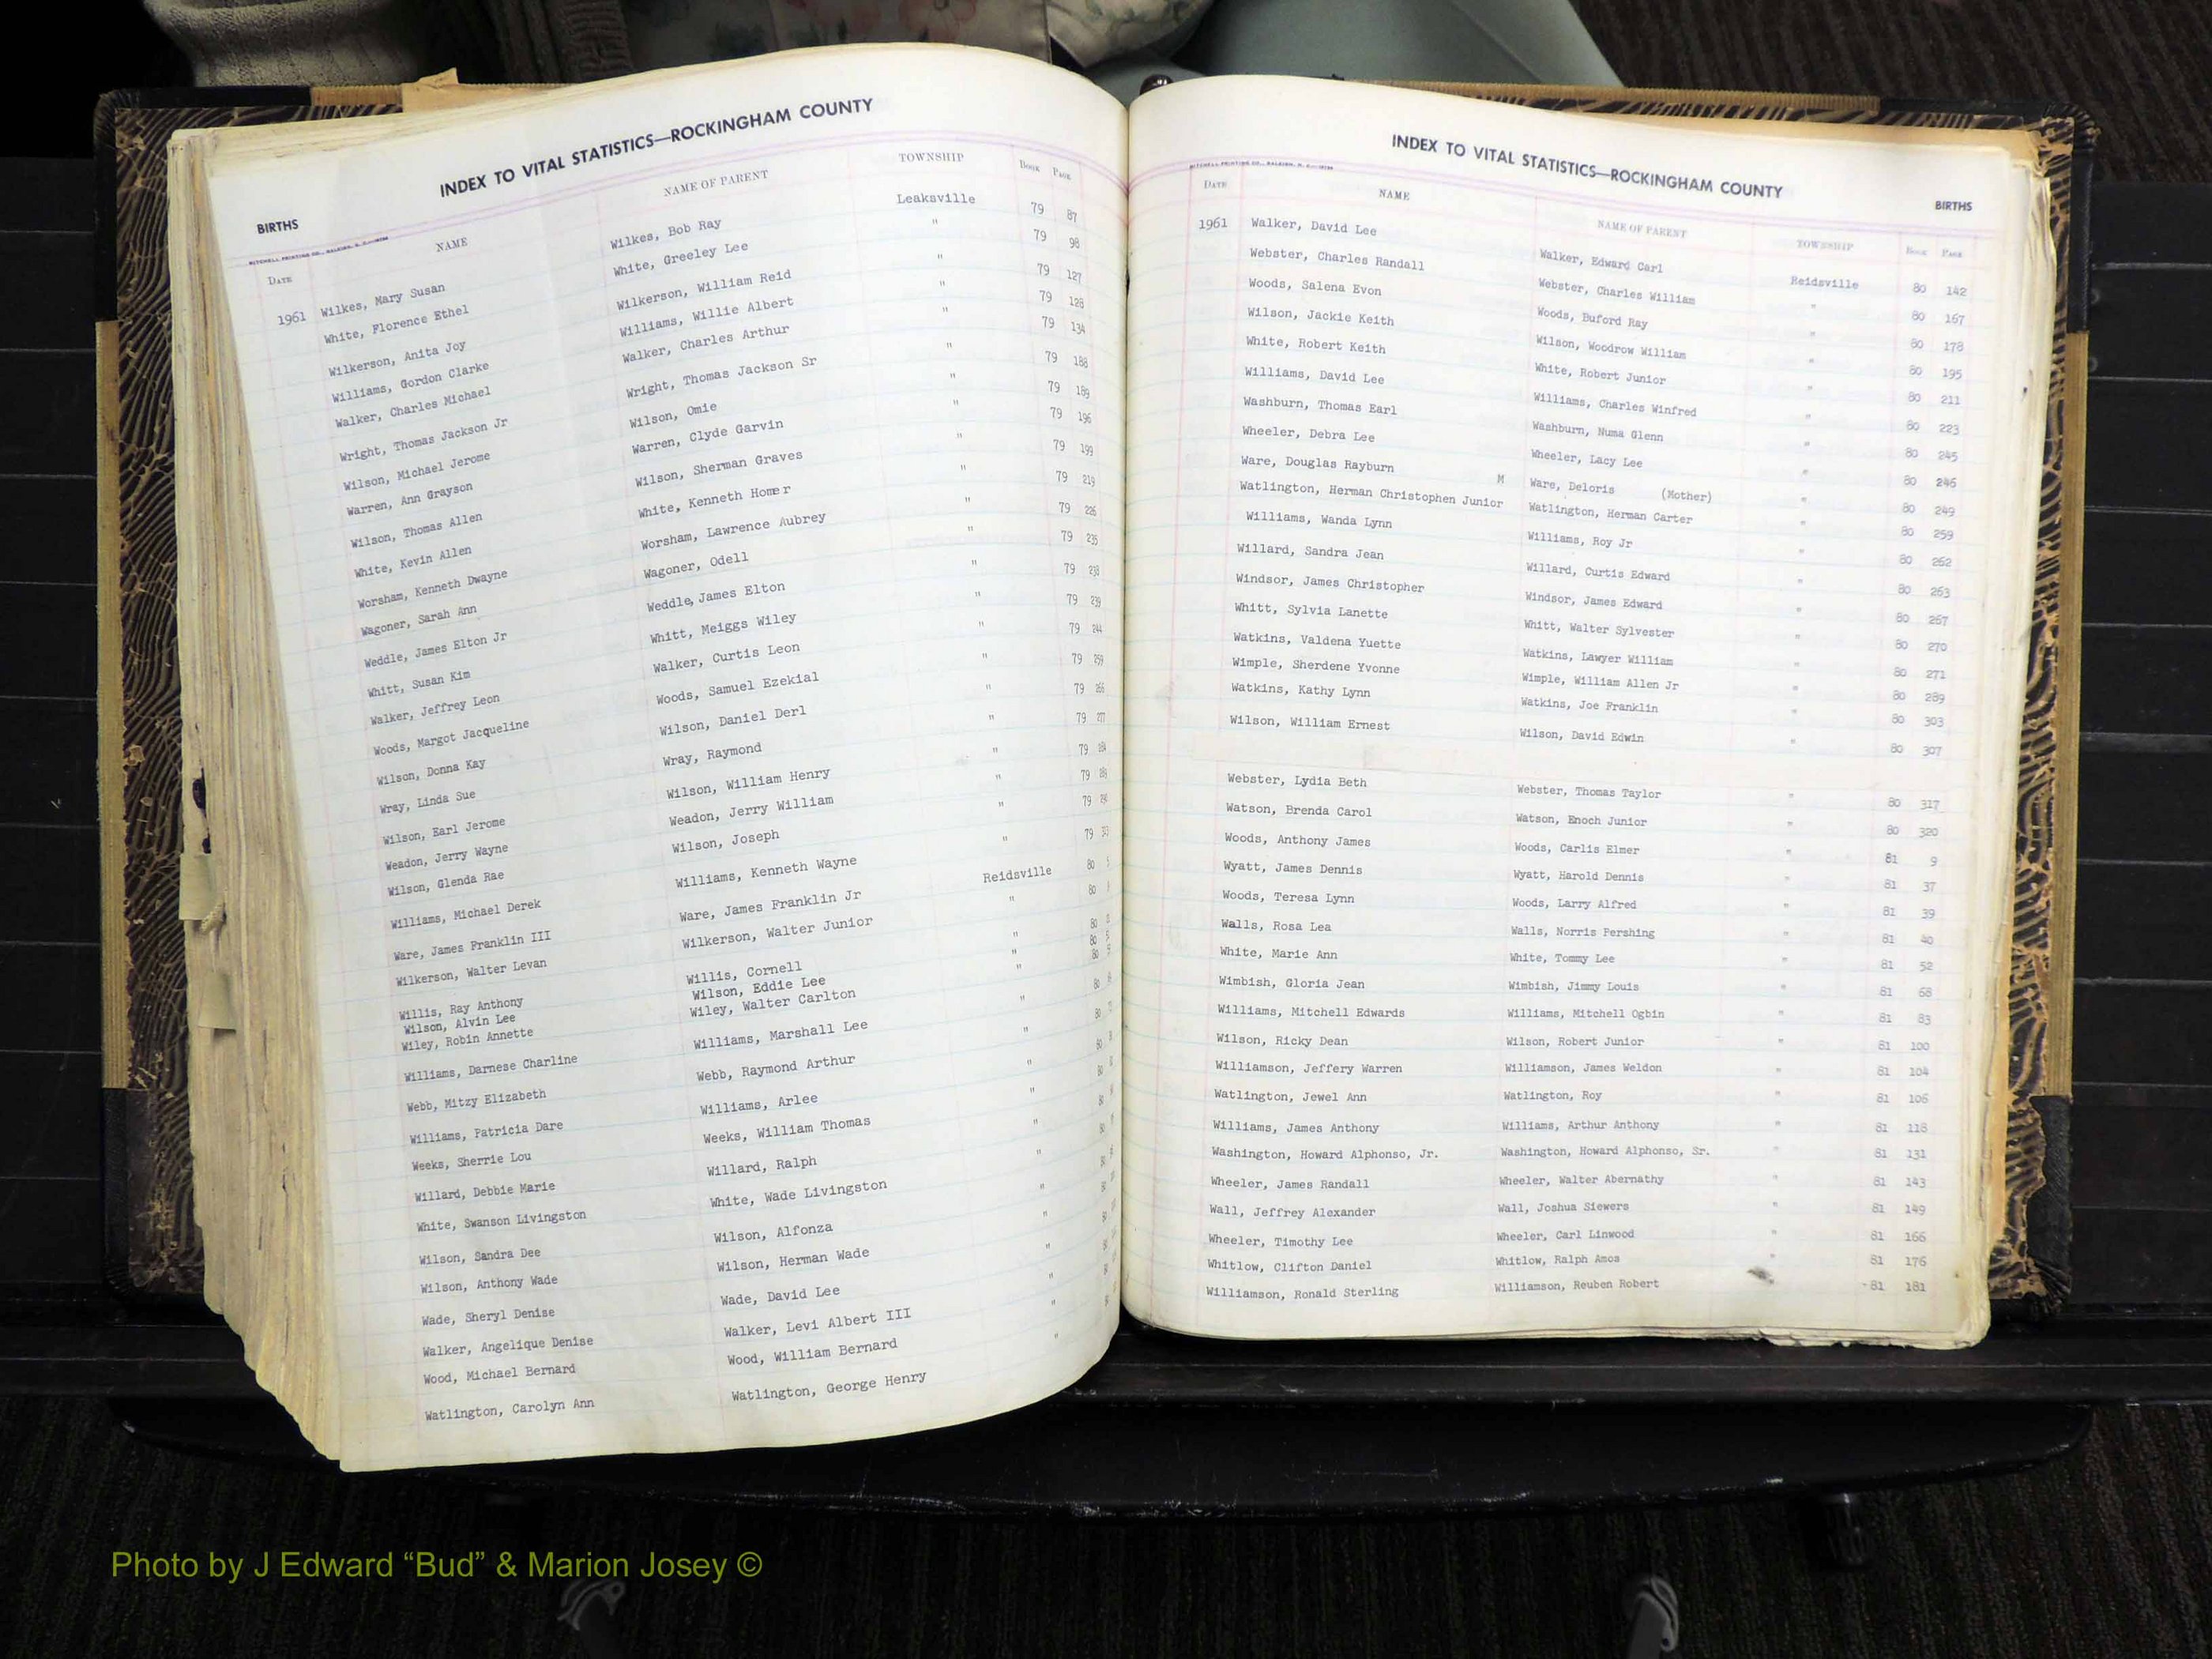 INDEX TO VITAL STATISTICS—ROCKINGHAM COUNTY
BIRTHS
DATE NAME NAME OF PARENT TOWNSHIP BOOK PAGE
1961 Wilkes, Mary Susan Wilkes, Bob Ray Leaksville 79 87
White, Florence Ethel White, Greeley Lee " 79 98
Wilkerson, Anita Joy Wilkerson, William Reid " 79 127
Williams, Gordon Clarke Williams, Willie Albert " 79 128
Walker, Charles Michael Walker, Charles Arthur " 79 134
Wright, Thomas Jackson Jr Wright, Thomas Jackson Sr " 79 188
Wilson, Michael Jerome Wilson, Omie " 79 189
Warren, Ann Grayson Warren, Clyde Garvin " 79 196
Wilson, Thomas Allen Wilson, Sherman Graves " 79 199
White, Kevin Allen White, Kenneth Homer " 79 219
Worsham, Kenneth Dwayne Worsham, Lawrence Aubrey " 79 226
Wagoner, Sarah Ann Wagoner, Odell " 79 235
Weddle, James Elton Jr Weddle, James Elton " 79 238
Whitt, Susan Kim Whitt, Meiggs Wiley " 79 239
Walker, Jeffrey Leon Walker, Curtis Leon " 79 244
Woods, Margot Jacqueline Woods, Samuel Ezekial " 79 259
Wilson, Donna Kay Wilson, Daniel Derl " 79 266
Wray, Linda Sue Wray, Raymond " 79 277
Wilson, Earl Jerome Wilson, William Henry " 79
Weadon, Jerry Wayne Weadon, Jerry William " 79
Wilson, Glenda Rae Wilson, Joseph " 79
Williams, Michael Derek Williams, Kenneth Wayne " 79
Ware, James Franklin III Ware, James Franklin Jr Reidsville 80
Wilkerson, Walter Levan Wilkerson, Walter Junior " 80
Willis, Ray Anthony Willis, Cornell " 80
Wilson, Alvin Lee Wilson, Eddie Lee " 80
Wiley, Robin Annette Wiley, Walter Carlton " 80
Williams, Darnese Charline Williams, Marshall Lee " 80
Webb, Mitzy Elizabeth Webb, Raymond Arthur " 80
Williams, Patricia Dare Williams, Arlee " 80
Weeks, Sherrie Lou Weeks, William Thomas " 80
Willard, Debbie Marie Willard, Ralph " 80
White, Swanson Livingston White, Wade Livingston " 80
Wilson, Sandra Dee Wilson, Alfonza " 80
Wilson, Anthony Wade Wilson, Herman Wade " 80
Wade, Sheryl Denise Wade, David Lee " 80
Walker, Angelique Denise Walker, Levi Albert III " 80
Wood, Michael Bernard Wood, William Bernard "
Watlington, Carolyn Ann Watlington, George Henry "
INDEX TO VITAL STATISTICS—ROCKINGHAM COUNTY
BIRTHS
DATE NAME NAME OF PARENT TOWNSHIP BOOK PAGE
1961 Walker, David Lee Walker, Edward Carl Reidsville 80 142
Webster, Charles Randall Webster, Charles William " 80 167
Woods, Salena Evon Woods, Buford Ray " 80 178
Wilson, Jackie Keith Wilson, Woodrow William " 80 195
White, Robert Keith White, Robert Junior " 80 211
Williams, David Lee Williams, Charles Winfred " 80 223
Washburn, Thomas Earl Washburn, Numa Glenn " 80 245
Wheeler, Debra Lee Wheeler, Lacy Lee " 80 246
Ware, Douglas Rayburn M Ware, Deloris (Mother) " 80 249
Watlington, Herman Christophen Junior Watlington, Herman Carter " 80 259
Williams, Wanda Lynn Williams, Roy Jr " 80 262
Willard, Sandra Jean Willard, Curtis Edward " 80 263
Windsor, James Christopher Windsor, James Edward " 80 267
Whitt, Sylvia Lanette Whitt, Walter Sylvester " 80 270
Watkins, Valdena Yuette Watkins, Lawyer William " 80 271
Wimple, Sherdene Yvonne Wimple, William Allen Jr " 80 289
Watkins, Kathy Lynn Watkins, Joe Franklin " 80 303
Wilson, William Ernest Wilson, David Edwin " 80 307
Webster, Lydia Beth Webster, Thomas Taylor " 80 317
Watson, Brenda Carol Watson, Enoch Junior " 80 320
Woods, Anthony James Woods, Carlis Elmer " 81 9
Wyatt, James Dennis Wyatt, Harold Dennis " 81 37
Woods, Teresa Lynn Woods, Larry Alfred " 81 39
Walls, Rosa Lea Walls, Norris Pershing " 81 40
White, Marie Ann White, Tommy Lee " 81 52
Wimbish, Gloria Jean Wimbish, Jimmy Louis " 81 68
Williams, Mitchell Edwards Williams, Mitchell Ogbin " 81 83
Wilson, Ricky Dean Wilson, Robert Junior " 81 100
Williamson, Jeffery Warren Williamson, James Weldon " 81 104
Watlington, Jewel Ann Watlington, Roy " 81 106
Williams, James Anthony Williams, Arthur Anthony " 81 118
Washington, Howard Alphonso, Jr. Washington, Howard Alphonso, Sr. " 81 131
Wheeler, James Randall Wheeler, Walter Abernathy " 81 143
Wall, Jeffrey Alexander Wall, Joshua Siewers " 81 149
Wheeler, Timothy Lee Wheeler, Carl Linwood " 81 166
Whitlow, Clifton Daniel Whitlow, Ralph Amos " 81 176
Williamson, Ronald Sterling Williamson, Reuben Robert 81 181
Photo by J Edward “Bud” & Marion Josey ©